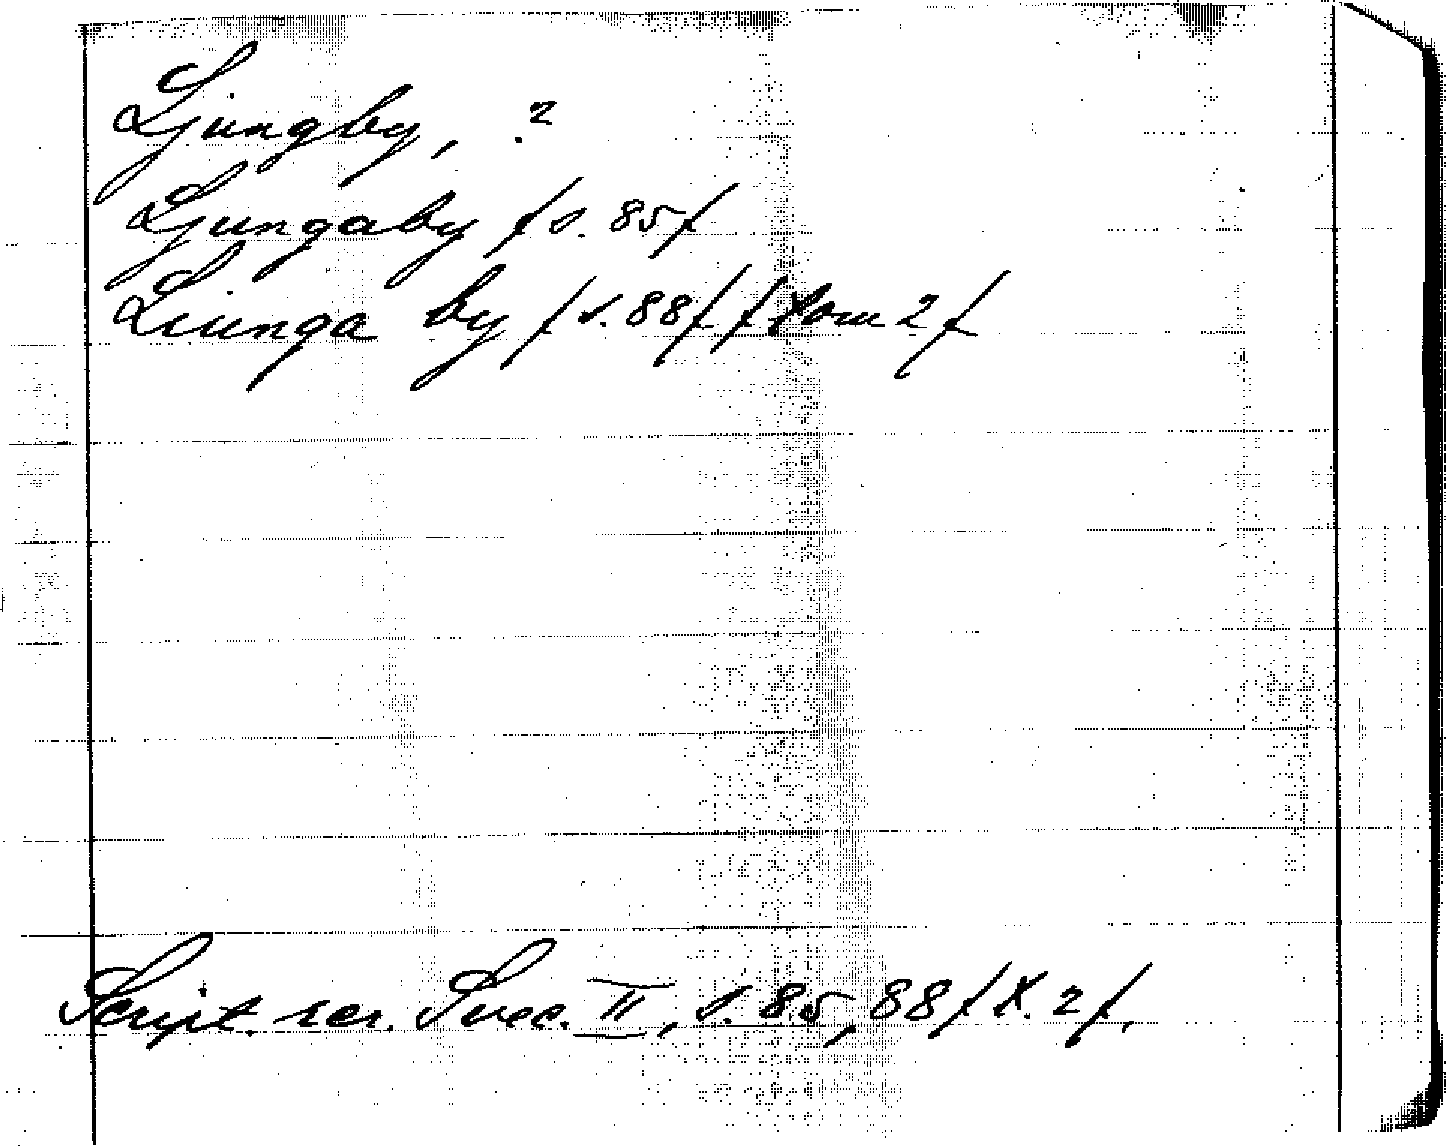 Ljungby, ?
Ljungaby /s. 85/
Liunga by /s. 88/ /tom 2/
Script. rer. Svec. II, s. 85, 88 /X. 2/.